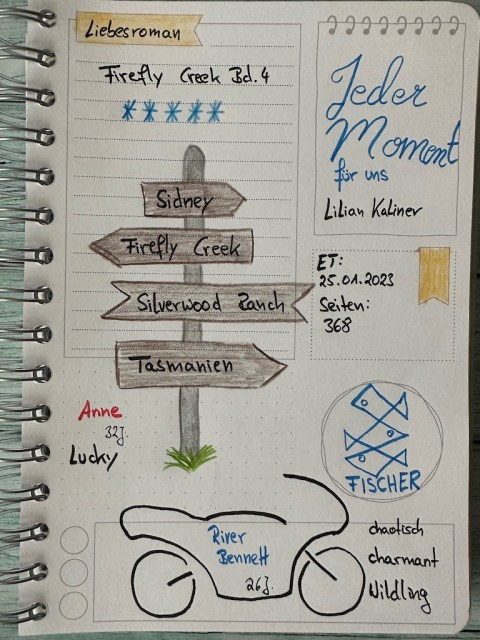 Liebesroman
Firefly Creek Bd. 4
*****
Sidney
Firefly Creek
Silverwood Ranch
Tasmanien
Jeder
Moment
für uns
Lilian Kaliner
ET:
25.01.2023
Seiten:
368
Anne
32J.
Lucky
FISCHER
River
Bennett
26J.
chaotisch
charmant
Wildling